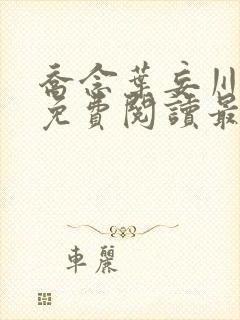 喬念葉妄川
免費閱讀最
車麗